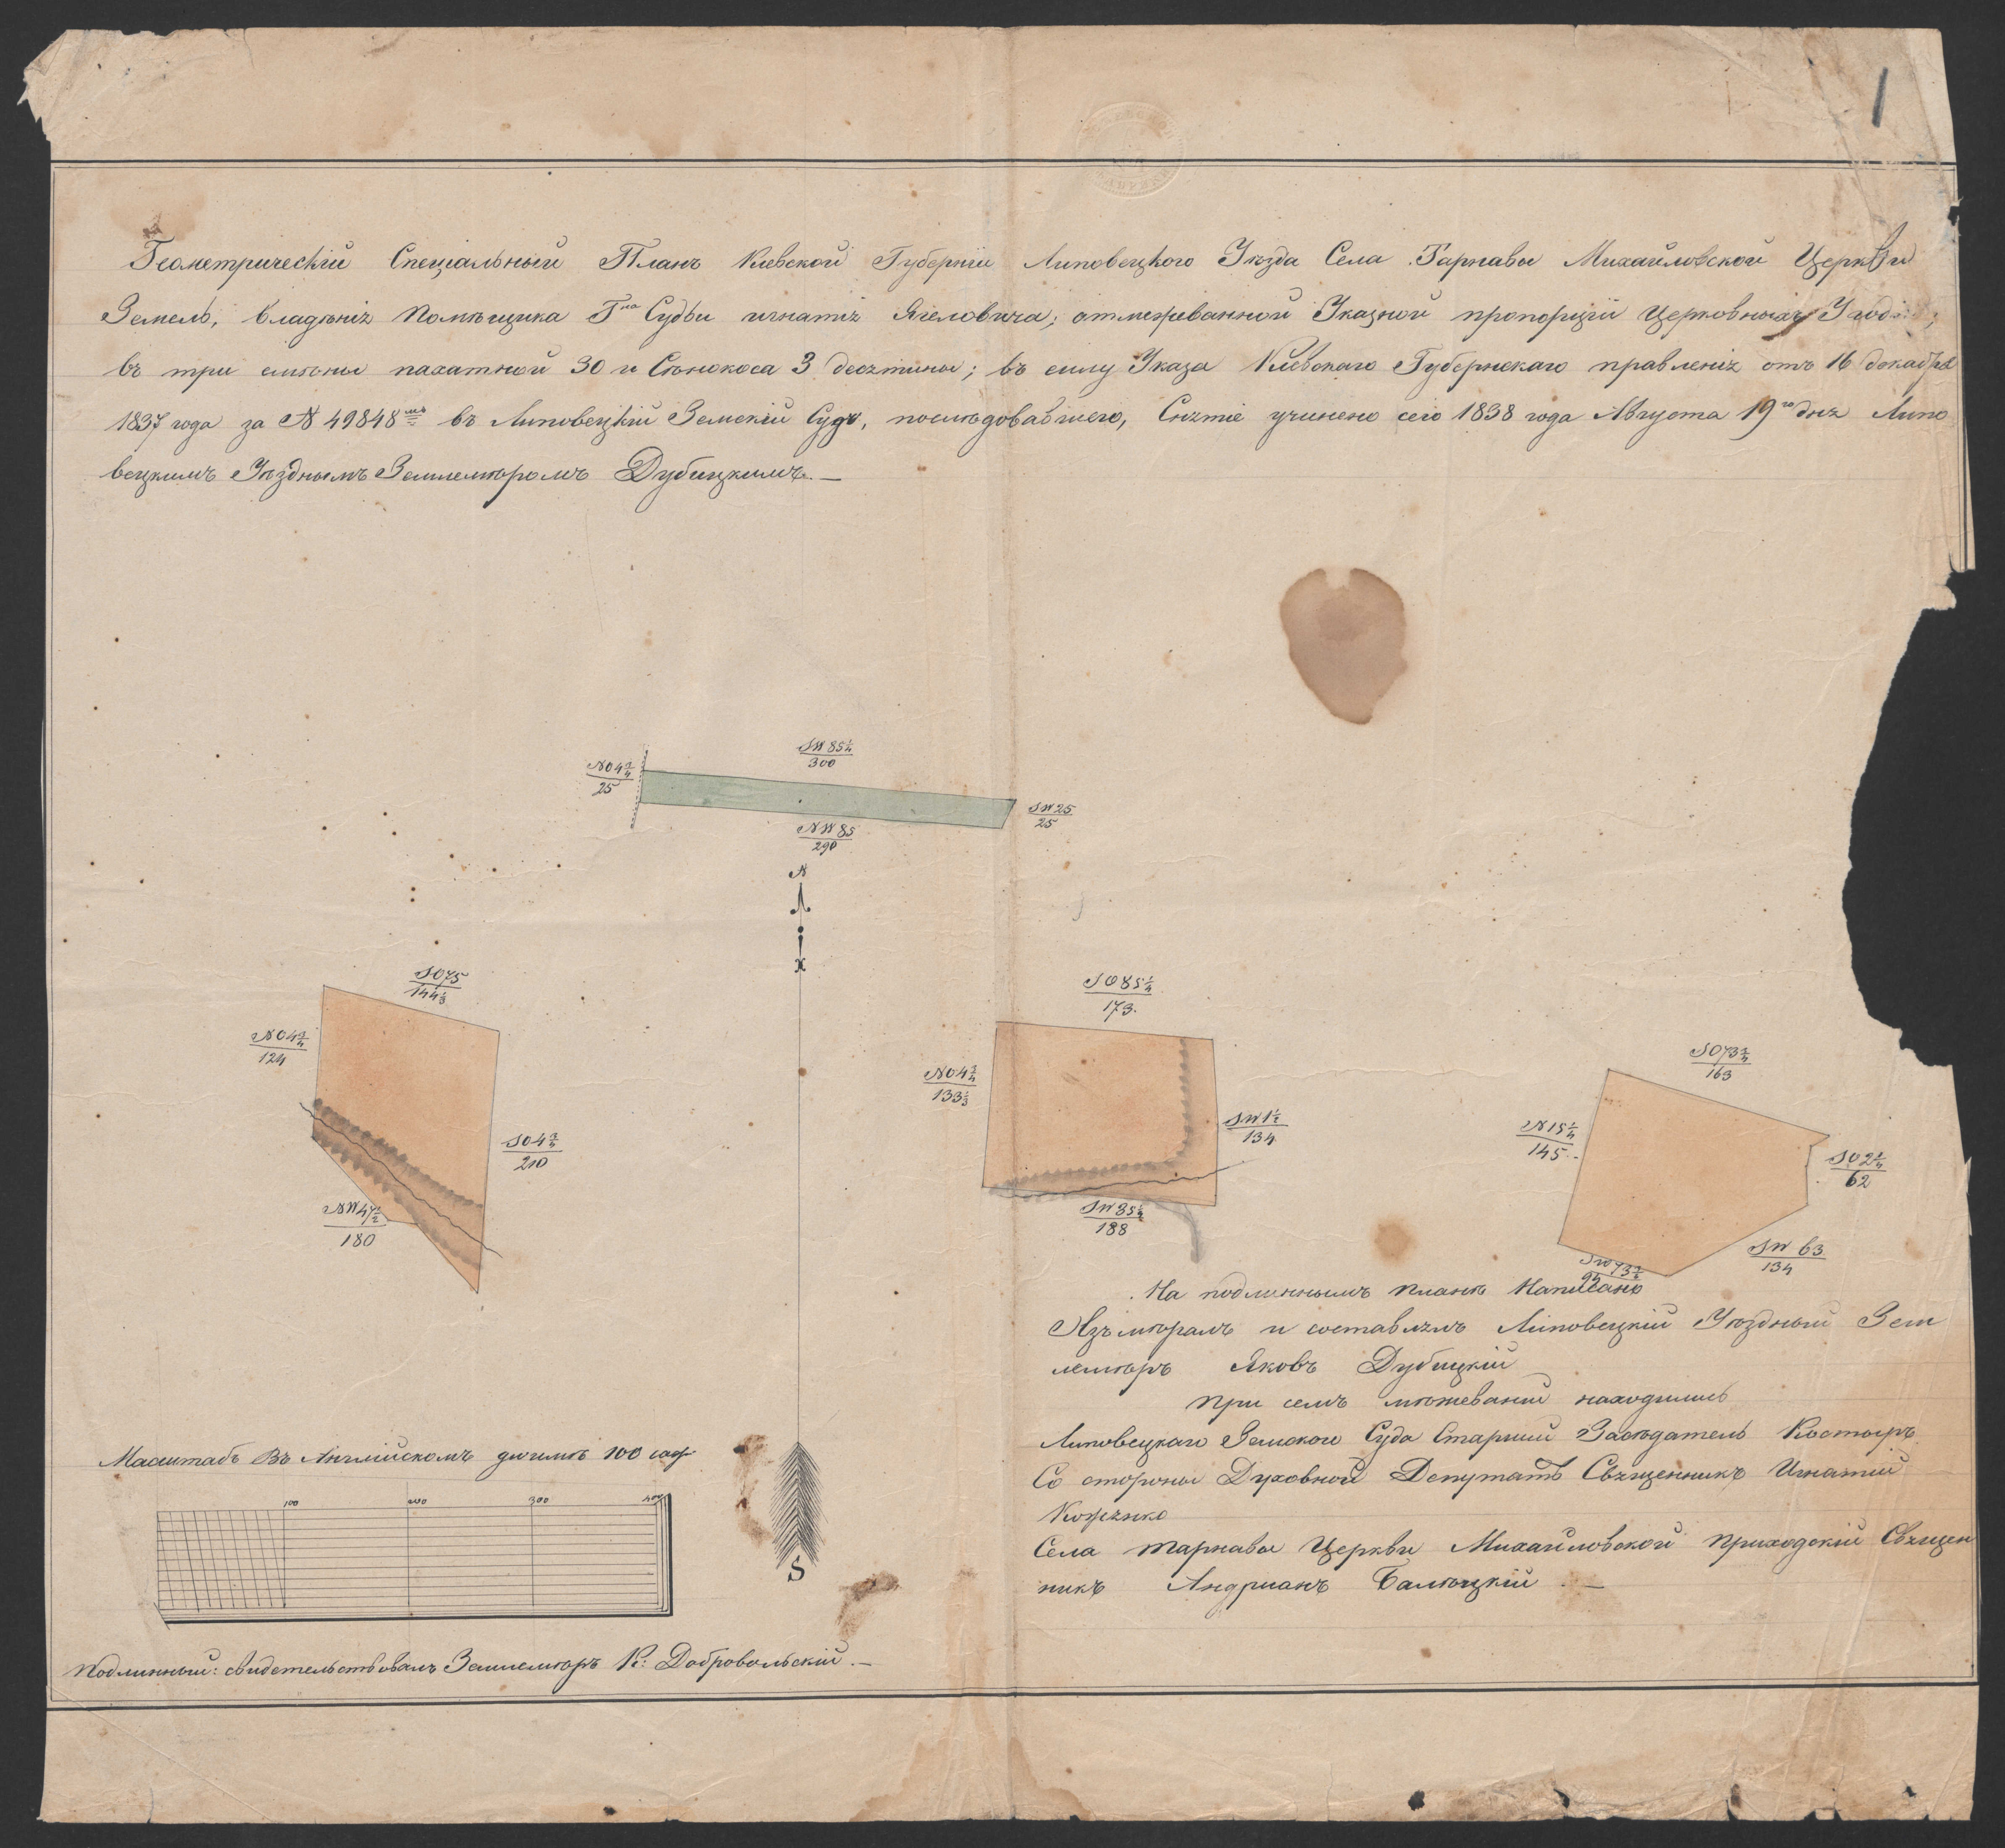 1
Геометрическій Спеціальный Планъ Кіевской Губерніи Липовецкого Уѣзда Села Тарнавы Михайловской Церкви
Земель, владѣнія Помѣщика Г<sup>на</sup> Судьи игнатія Ягеловича; отмежеванной Указной пропорціи Церковныхъ Угодій;
въ три смѣны пахатной 30 и Сѣнокоса 3 десятины; въ силу Указа Кіевскаго Губернскаго правленія отъ 16 декабря
1837 года за № 49848<sup>мъ</sup> въ Липовецкій Земскій Судъ, послѣдовавшего, Снятіе учинено сего 1838 года Августа 19<sup>го</sup> дня Липо
вецкимъ Уѣзднымъ Землемѣромъ Дубицкимъ.—
SW 85¼
300
NO 4¾
25
SW 25
25
NW 85
290
N
SO 75
144⅓
NO 4¾
124
SO 4¾
210
NW 47½
180
SO 85¼
173.
NO 4¾
133⅓
SW 1½
134
SW 85¼
188
SO 73¾
163
N 15¼
145
SO 2¼
62
SW 63
134
SW 73½
94
На подлинномъ планѣ Написано
Язъ мѣралъ и составлялъ Липовецкій Уѣздный Зем
лемѣръ Яковъ Дубицкій
при семъ мѣжеваніи находились
Липовецкаго Земского Суда Старшій Засѣдатель Костыръ
Со стороны Духовной Депутатъ Священникъ Игнатій
Села тарнавы Церкви Михайловской приходскій Священ
никъ Андріанъ —
Масштабъ Въ Англійскомъ дюймѣ 100 саж
100 200 300 400
S
Подлинный: свидетельствовалъ Землемѣръ К: Добровольскій.—